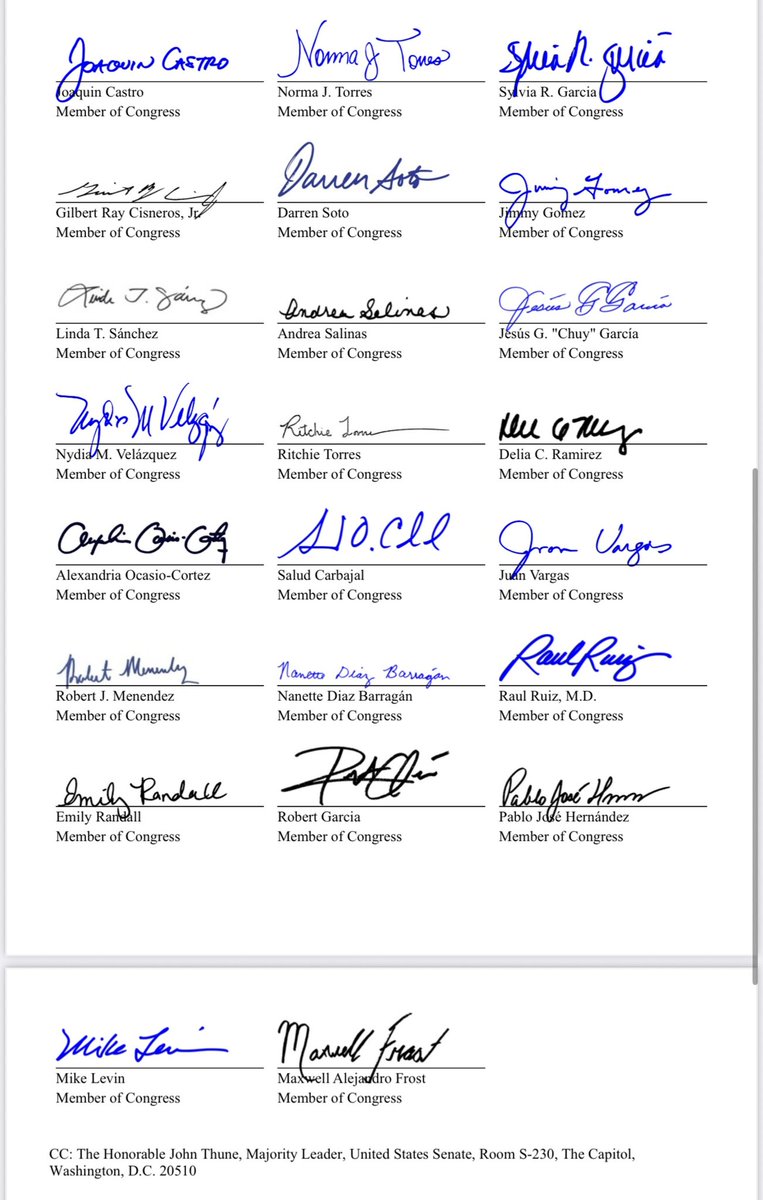 JOAQUIN CASTRO Norma J Torres Sylvia R. Garcia
Joaquin Castro Norma J. Torres Sylvia R. Garcia
Member of Congress Member of Congress Member of Congress
Darren Soto Jimmy Gomez
Gilbert Ray Cisneros, Jr. Darren Soto Jimmy Gomez
Member of Congress Member of Congress Member of Congress
Linda T. Sánchez Andrea Salinas Jesús G García
Linda T. Sánchez Andrea Salinas Jesús G. "Chuy" García
Member of Congress Member of Congress Member of Congress
Nydia M Velázquez Ritchie Torres
Nydia M. Velázquez Ritchie Torres Delia C. Ramirez
Member of Congress Member of Congress Member of Congress
Juan Vargas
Alexandria Ocasio-Cortez Salud Carbajal Juan Vargas
Member of Congress Member of Congress Member of Congress
Robert Menendez Nanette Diaz Barragán Raul Ruiz
Robert J. Menendez Nanette Diaz Barragán Raul Ruiz, M.D.
Member of Congress Member of Congress Member of Congress
Emily Randall Pablo José
Emily Randall Robert Garcia Pablo José Hernández
Member of Congress Member of Congress Member of Congress
Mike Levin Maxwell Frost
Mike Levin Maxwell Alejandro Frost
Member of Congress Member of Congress
CC: The Honorable John Thune, Majority Leader, United States Senate, Room S-230, The Capitol,
Washington, D.C. 20510